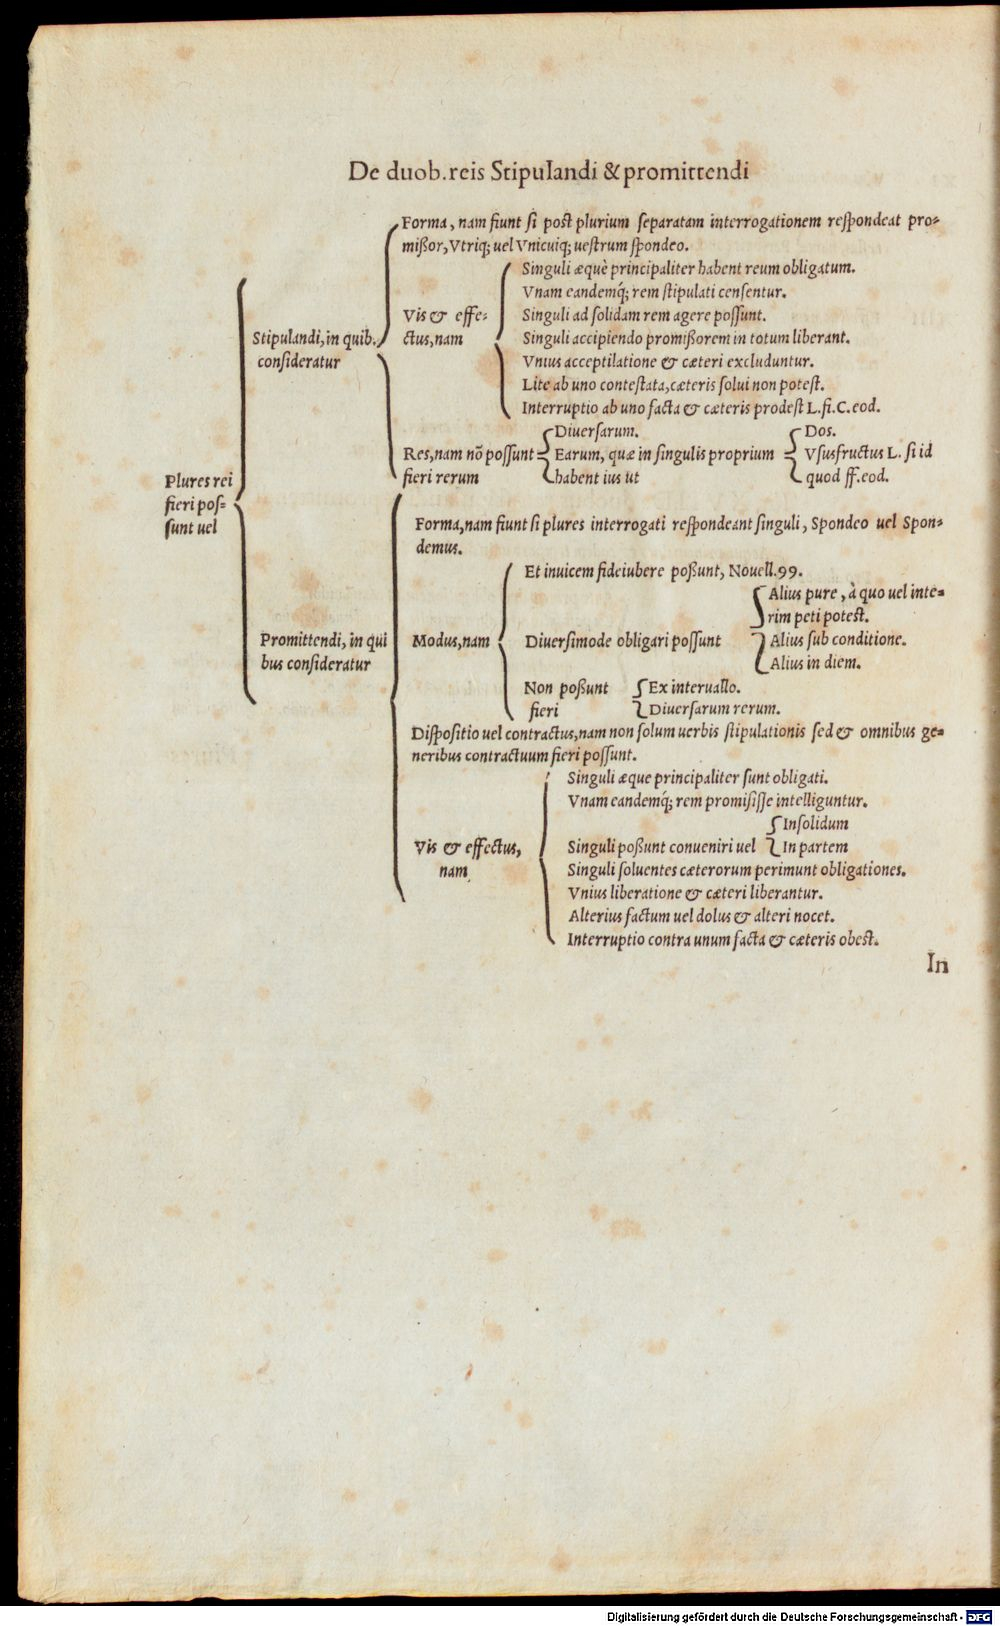 De duob.reis Stipulandi & promittendi
Plures rei
fieri pos-
sunt uel
Stipulandi, in quib.
consideratur
Forma, nam fiunt si post plurium separatam interrogationem respondeat pro-
mißor, Vtriq; uel Vnicuiq; uestrum spondeo.
Vis & effe-
ctus, nam
Singuli æquè principaliter habent reum obligatum.
Vnam eandemq́; rem stipulati censentur.
Singuli ad solidam rem agere possunt.
Singuli accipiendo promißorem in totum liberant.
Vnius acceptilatione & cæteri excluduntur.
Lite ab uno contestata, cæteris solui non potest.
Interruptio ab uno facta & cæteris prodest L.fi.C.eod.
Res, nam nõ possunt
fieri rerum
Diuersarum.
Earum, quæ in singulis proprium
habent ius ut
Dos.
Vsusfructus L. si id
quod ff.eod.
Promittendi, in qui
bus consideratur
Forma, nam fiunt si plures interrogati respondeant singuli, Spondeo uel Spon-
demus.
Modus, nam
Et inuicem fideiubere poßunt, Nouell.99.
Diuersimode obligari possunt
Alius pure, à quo uel inte-
rim peti potest.
Alius sub conditione.
Alius in diem.
Non poßunt
fieri
Ex interuallo.
Diuersarum rerum.
Dispositio uel contractus, nam non solum uerbis stipulationis sed & omnibus ge-
neribus contractuum fieri possunt.
Vis & effectus,
nam
Singuli æque principaliter sunt obligati.
Vnam eandemq́; rem promisisse intelliguntur.
Singuli poßunt conueniri uel
Insolidum
In partem
Singuli soluentes cæterorum perimunt obligationes.
Vnius liberatione & cæteri liberantur.
Alterius factum uel dolus & alteri nocet.
Interruptio contra unum facta & cæteris obest.
In
Digitalisierung gefördert durch die Deutsche Forschungsgemeinschaft - DFG